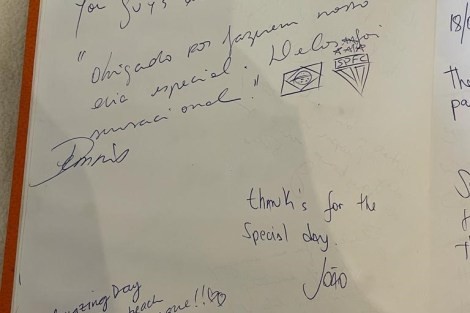 You guys
"Obrigado por fazerem nosso
dia especial. Delos foi
sensacional."
SPFC
Dennis
thank's for the
special day.
João
Amazing Day
beach
!!
18/0
the
pa